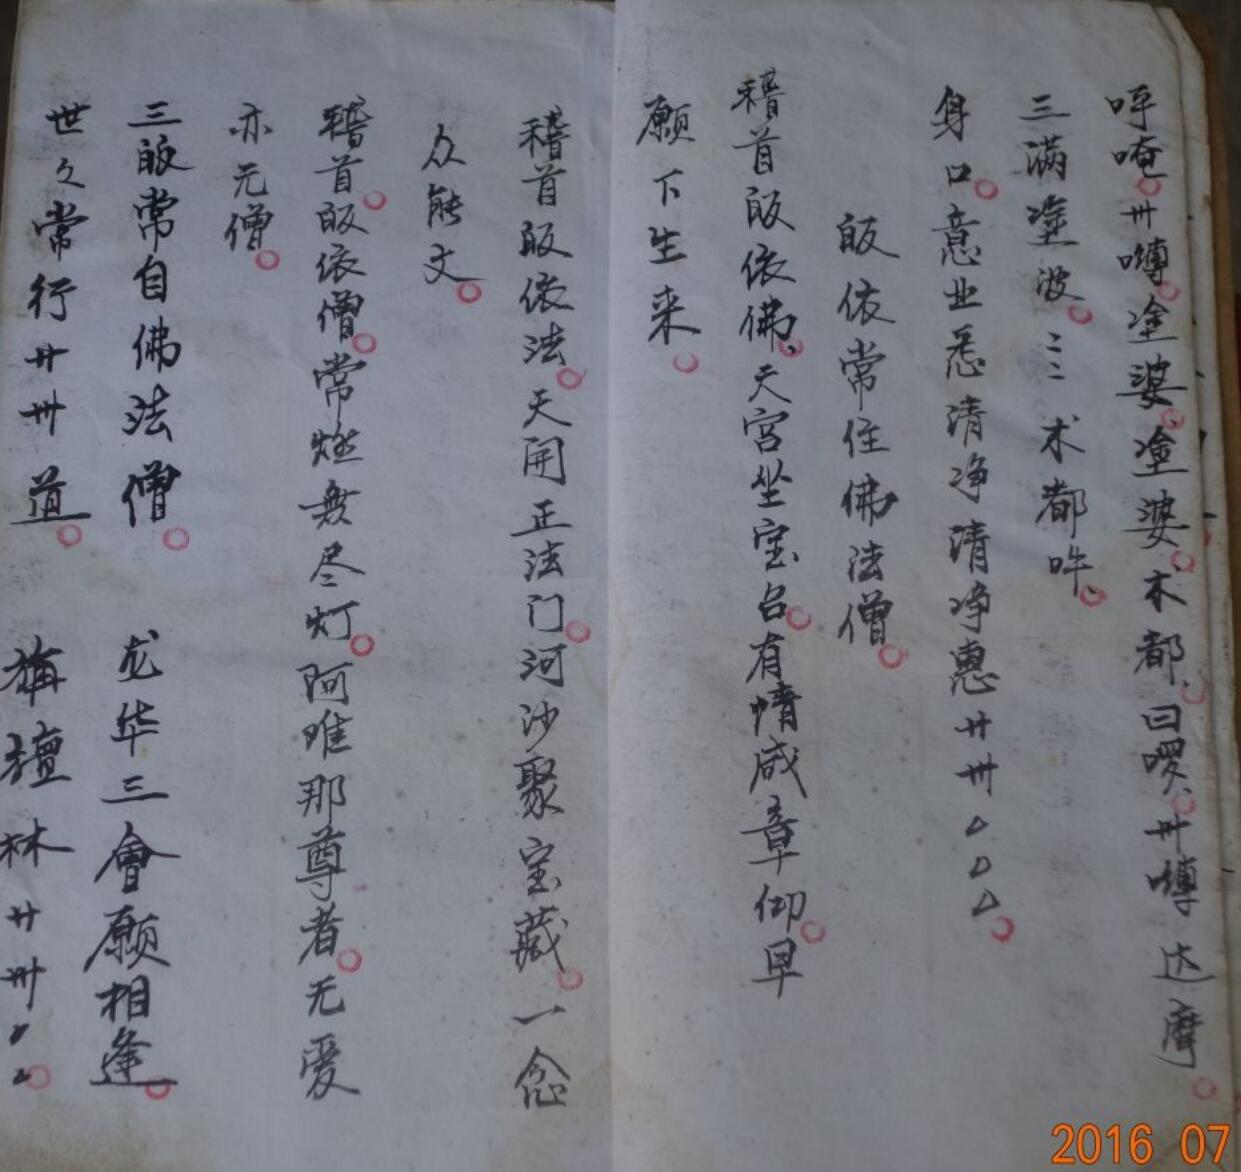 呼唵卅嚩塗婆塗婆木都曰嗳卅嚩达摩
三满塗波三三术都吽
身口意业悉清净清净惠廾卅
皈依常住佛法僧
稽首皈依佛天宫坐宝台有情咸章仰早
愿下生来
稽首皈依法天开正法门河沙聚宝藏一念
众能文
稽首皈依僧常燃无尽灯阿难那尊者无爱
亦元僧
三皈常自佛法僧 龙华三會愿相逢
世々常行廾卅道 旃檀林廾卅
2016 07